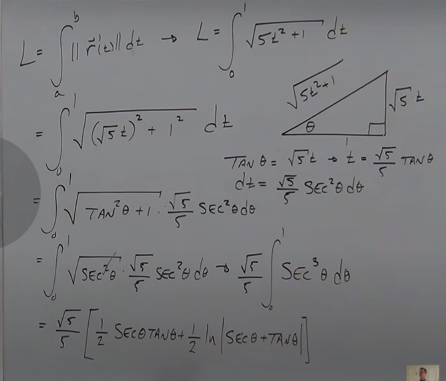 L = ∫ₐᵇ ‖r⃗'(t)‖ dt → L = ∫₀¹ √(5t²+1) dt
= ∫₀¹ √((√5 t)² + 1²) dt
√(5t²+1)
√5 t
θ
1
TAN θ = √5 t → t = √5/5 TAN θ
dt = √5/5 SEC²θ dθ
= ∫₀¹ √(TAN²θ + 1) · √5/5 SEC²θ dθ
= ∫₀¹ √(SEC²θ) · √5/5 SEC²θ dθ → √5/5 ∫₀¹ SEC³θ dθ
= √5/5 [1/2 SECθTANθ + 1/2 ln |SECθ + TANθ|]